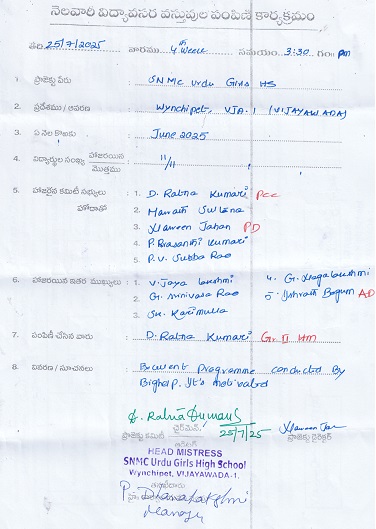 నెలవారీ విద్యావసర వస్తువుల పంపిణీ కార్యక్రమం
తేది 25/7/2025 వారము 4th week సమయం 3:30 గం॥ Pm
1. ప్రాజెక్టు పేరు : SNMC Urdu Girls HS
2. ప్రదేశము / ఆవరణ : Wynchipet, VJA-1 (VIJAYAWADA)
3. ఏ నెల కొఱకు : June 2025
4. విద్యార్థుల సంఖ్య హాజరయిన / మొత్తము : 11/11
5. హాజరైన కమిటీ సభ్యులు : 1. D. Ratna Kumari PCC
హోదాతో 2. Harath Sultana
3. Nasreen Jahan PD
4. P. Prasanthi Kumari
5. P.V. Subba Rao
6. హాజరయిన ఇతర ముఖ్యులు : 1. V. Jaya Lakshmi 4. G. Nagalakshmi
2. G. Srinivasa Rao 5. Ishrath Begum AD
3. SK. Karimulla
7. పంపిణీ చేసిన వారు : D. Ratna Kumari Gr. II HM
8. వివరణ / సూచనలు : Programme conducted By
It's motivated
D. Ratna Kumari
ప్రాజెక్టు కమిటీ ఛైర్మెన్ 25/7/25 ప్రాజెక్టు డైరెక్టర్
HEAD MISTRESS
SNMC Urdu Girls High School
Wynchinet, VIJAYAWADA-1.
P. Dhanalakshmi